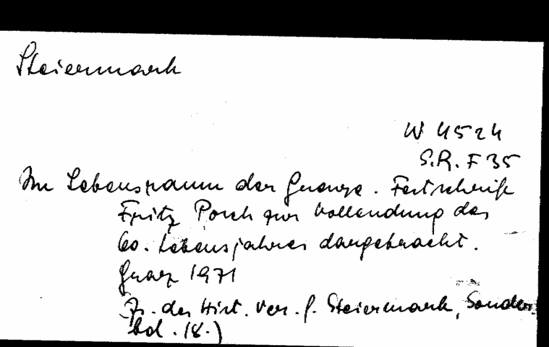 Steiermark
W 4524
S.R. F 35
Im Lebensraum der Grenze. Festschrift
Fritz Posch zur Vollendung des
60. Lebensjahres dargebracht.
Graz 1971
(Z. des Hist. Ver. f. Steiermark, Sonder
bd. 18.)